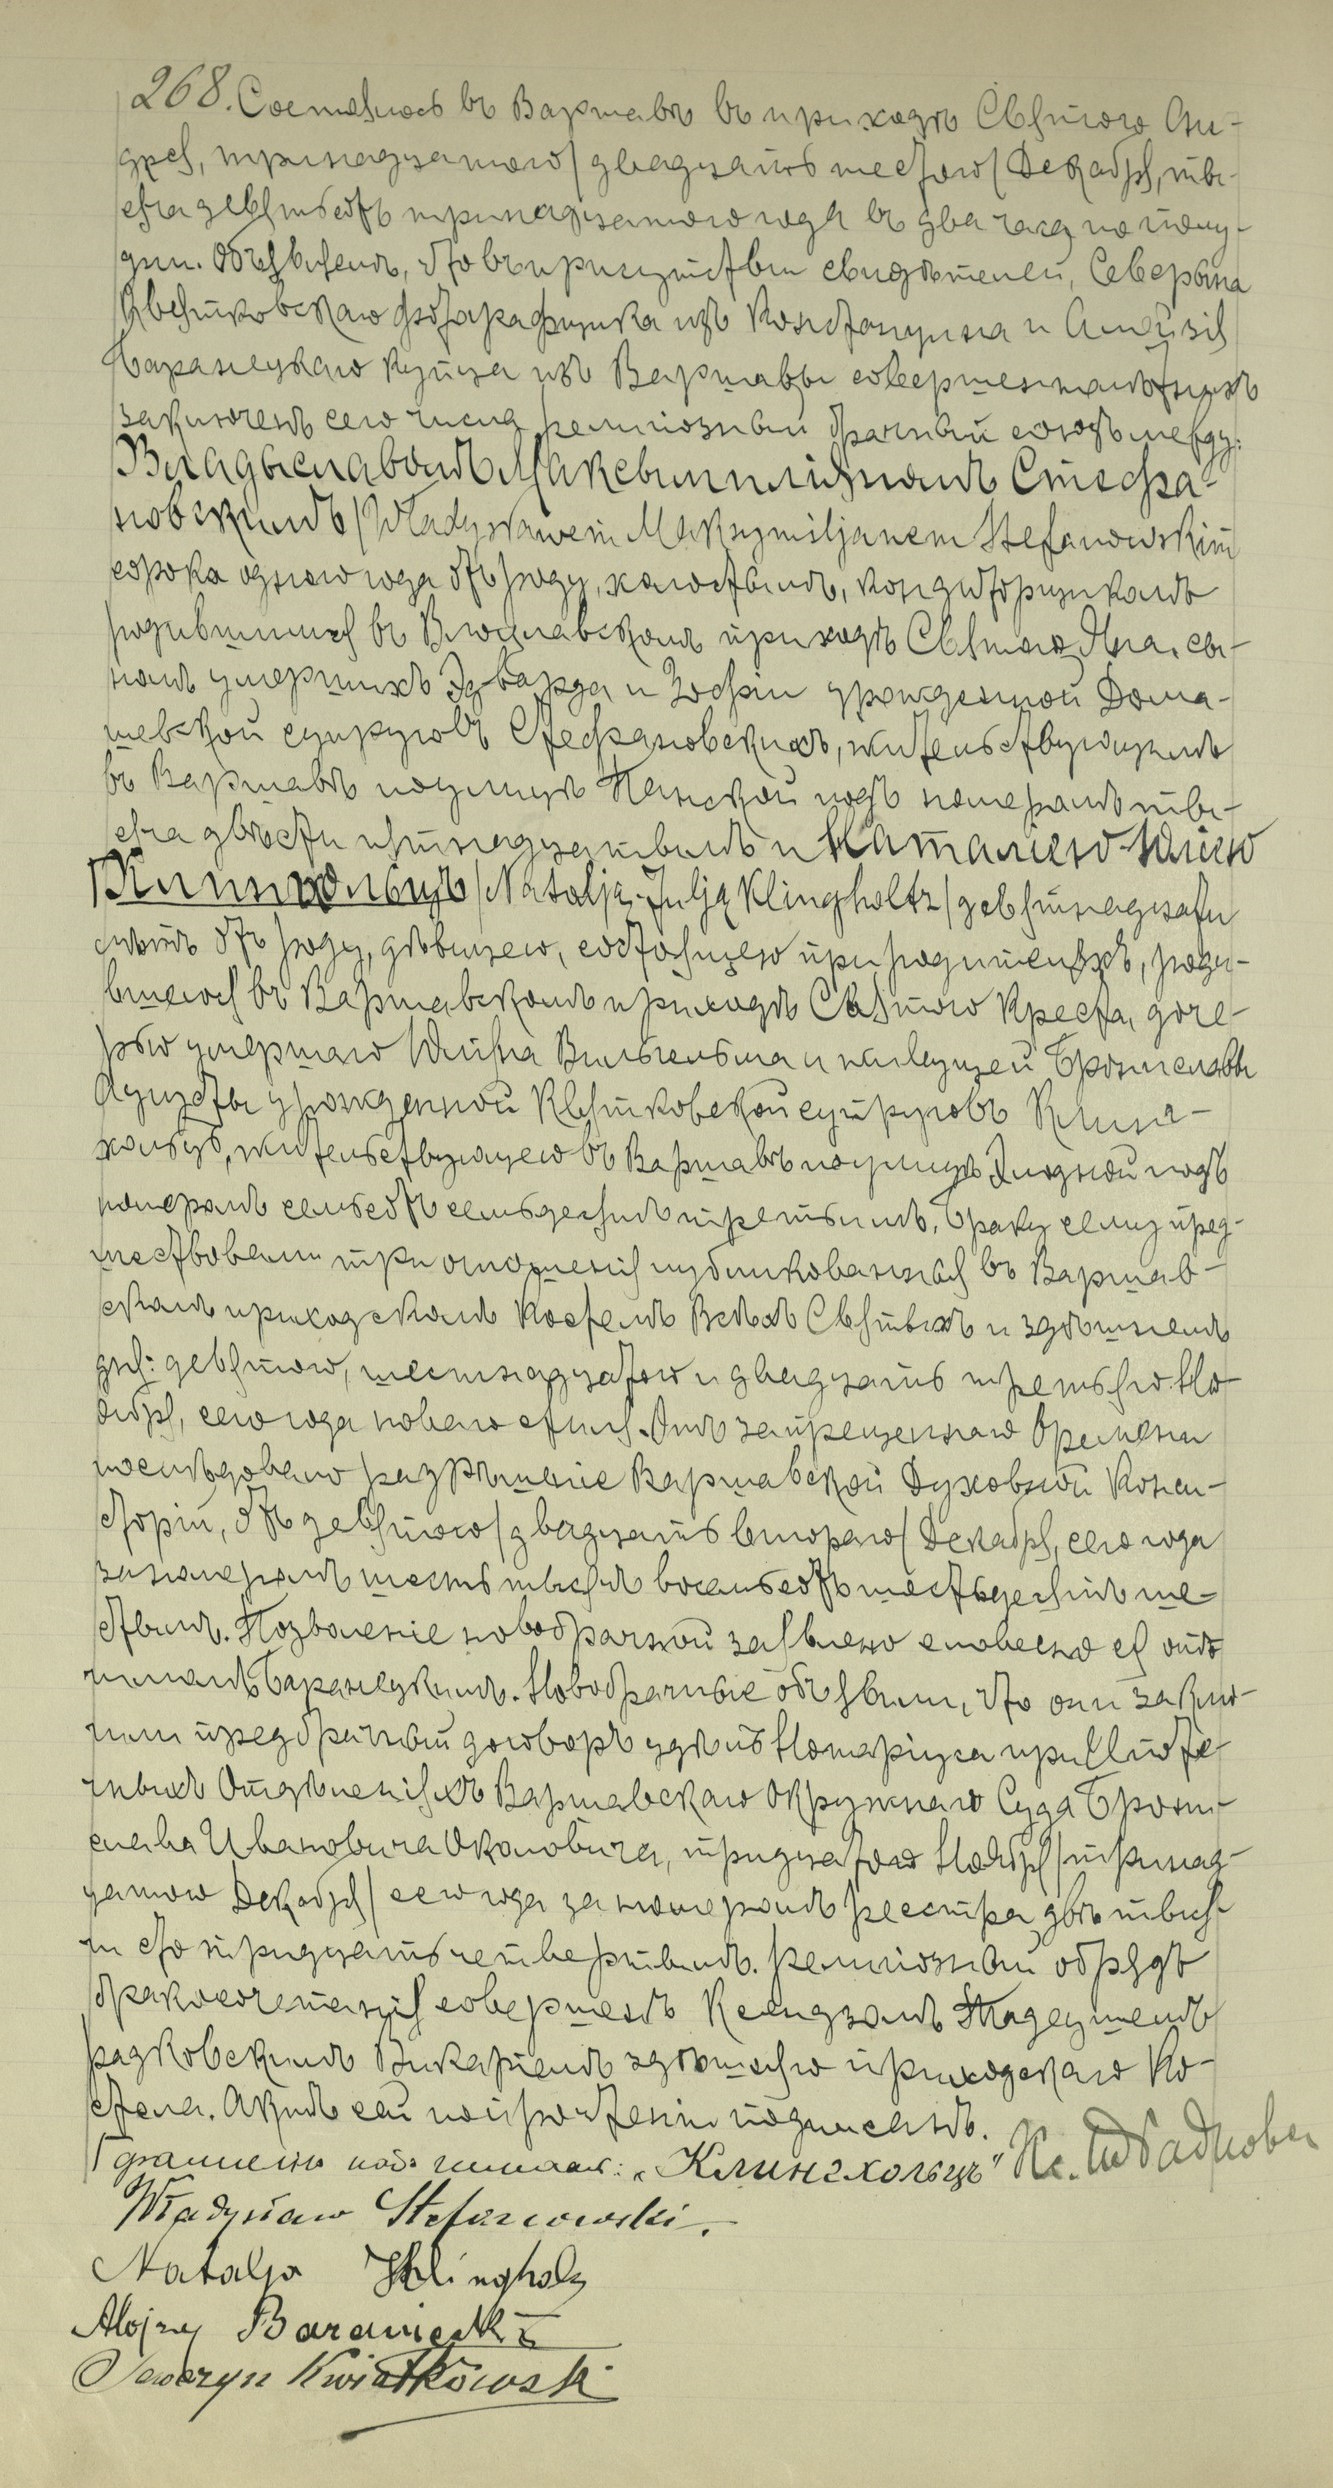 268. Состоялось въ Варшавѣ въ приходѣ Святого Ан-
дрея, тринадцатого /двадцать шестого/ Декабря, ты-
сяча девятьсотъ тринадцатого года въ два часа по полу-
дни. Объявляемъ, что въ присутствіи свидѣтелей, Северына
Квятковскаго фотографщика изъ Константина и Алойзія
Баранецкаго купца изъ Варшавы совершеннолѣтнихъ
заключенъ сего числа религіозный брачный союзъ между:
Владыславомъ Максымиліяномъ Стефа-
новскимъ /Władysławem Maksymiljanem Stefanowskim
сорока одного года отъ роду, холостымъ, кондиторщикомъ
родившимся въ Влоцлавскомъ приходѣ Святого Яна, сы-
номъ умершихъ Эдварда и Зофіи урожденной Дома-
шевской супруговъ Стефановскихъ, жительствующимъ
въ Варшавѣ по улицѣ Панской подъ номеромъ ты-
сяча двѣсти пятнадцатымъ и Наталіею-Юліею
Клингхольцъ /Natalją-Julją Klingholtz/ девятнадцати
лѣтъ отъ роду, дѣвицею, состоящею при родителяхъ, роди-
вшеюся въ Варшавскомъ приходѣ Святого Креста, доче-
рью умершаго Юліана Вильгельма и живущей Брониславы
Аугусты урожденной Квятковской супруговъ Клинг-
хольцъ, жительствующею въ Варшавѣ по улицѣ Злотой подъ
номеромъ семьсотъ семьдесятъ третьимъ. Браку сему пред-
шествовали три оглашенія публикованныя въ Варшав-
скомъ приходскомъ Костелѣ Всѣхъ Святыхъ и здѣшнемъ
дня: девятого, шестнадцатого и двадцать третьяго Но-
ября, сего года новаго стиля. Отъ запрещеннаго времени
послѣдовало разрѣшеніе Варшавской Духовной Конси-
сторіи, отъ девятого /двадцать второго/ Декабря, сего года
за номеромъ шесть тысячъ восемьсотъ шестьдесятъ ше-
стымъ. Позволеніе новобрачной заявлено словесно ея
Баранецкимъ. Новобрачные объявили, что они заклю-
чили предбрачный договоръ у Нотаріуса при Ипоте-
чныхъ Отдѣленіяхъ Варшавскаго Окружнаго Суда Брони-
слава Ивановича Околовича, тридцатого Ноября /тринад-
цатого Декабря/ сего года за номеромъ реестра двѣ тыся-
чи сто тридцать четвертымъ. Религіозный обрядъ
бракосочетанія совершенъ Ксендзомъ Тадеушемъ
Радковскимъ Викаріемъ здѣшняго приходскаго Ко-
стела. Актъ сей по прочтеніи подписанъ.
фамилію надо читать: „Клингхольцъ" Кс. Т. Радковскі
Władysław Stefanowski.
Natalja Klingholz
Alojzy Baraniecki
Seweryn Kwiatkowski